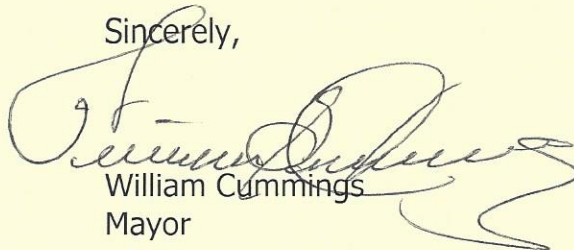 Sincerely,
William Cummings
Mayor